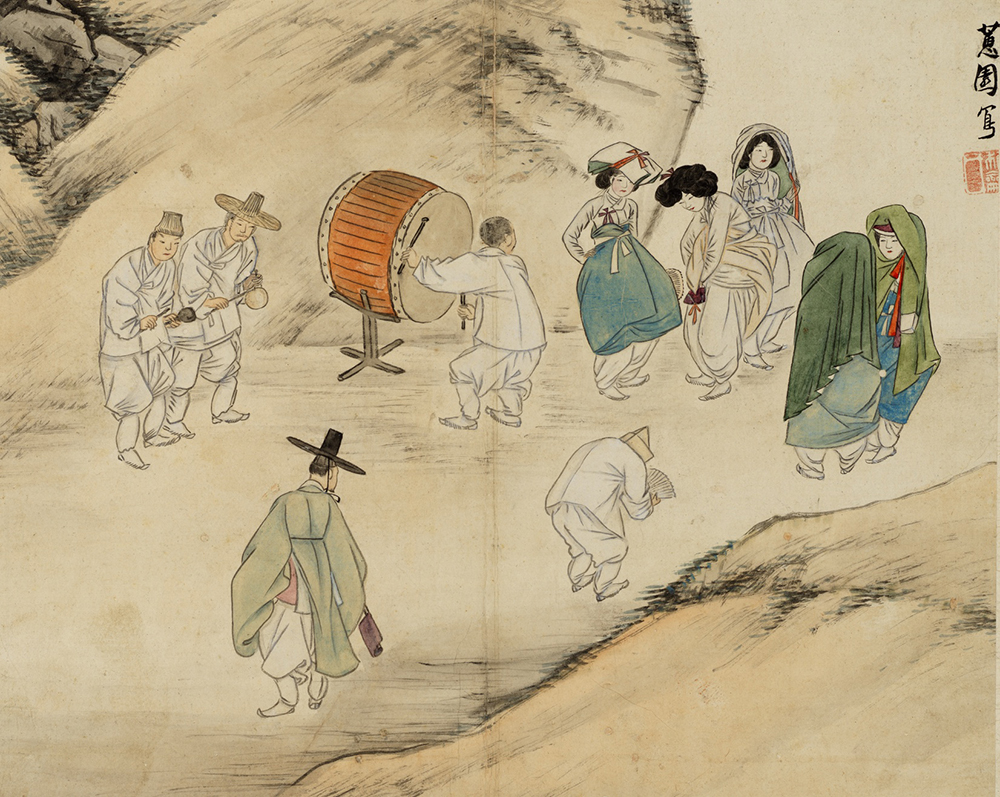 蕙園寫